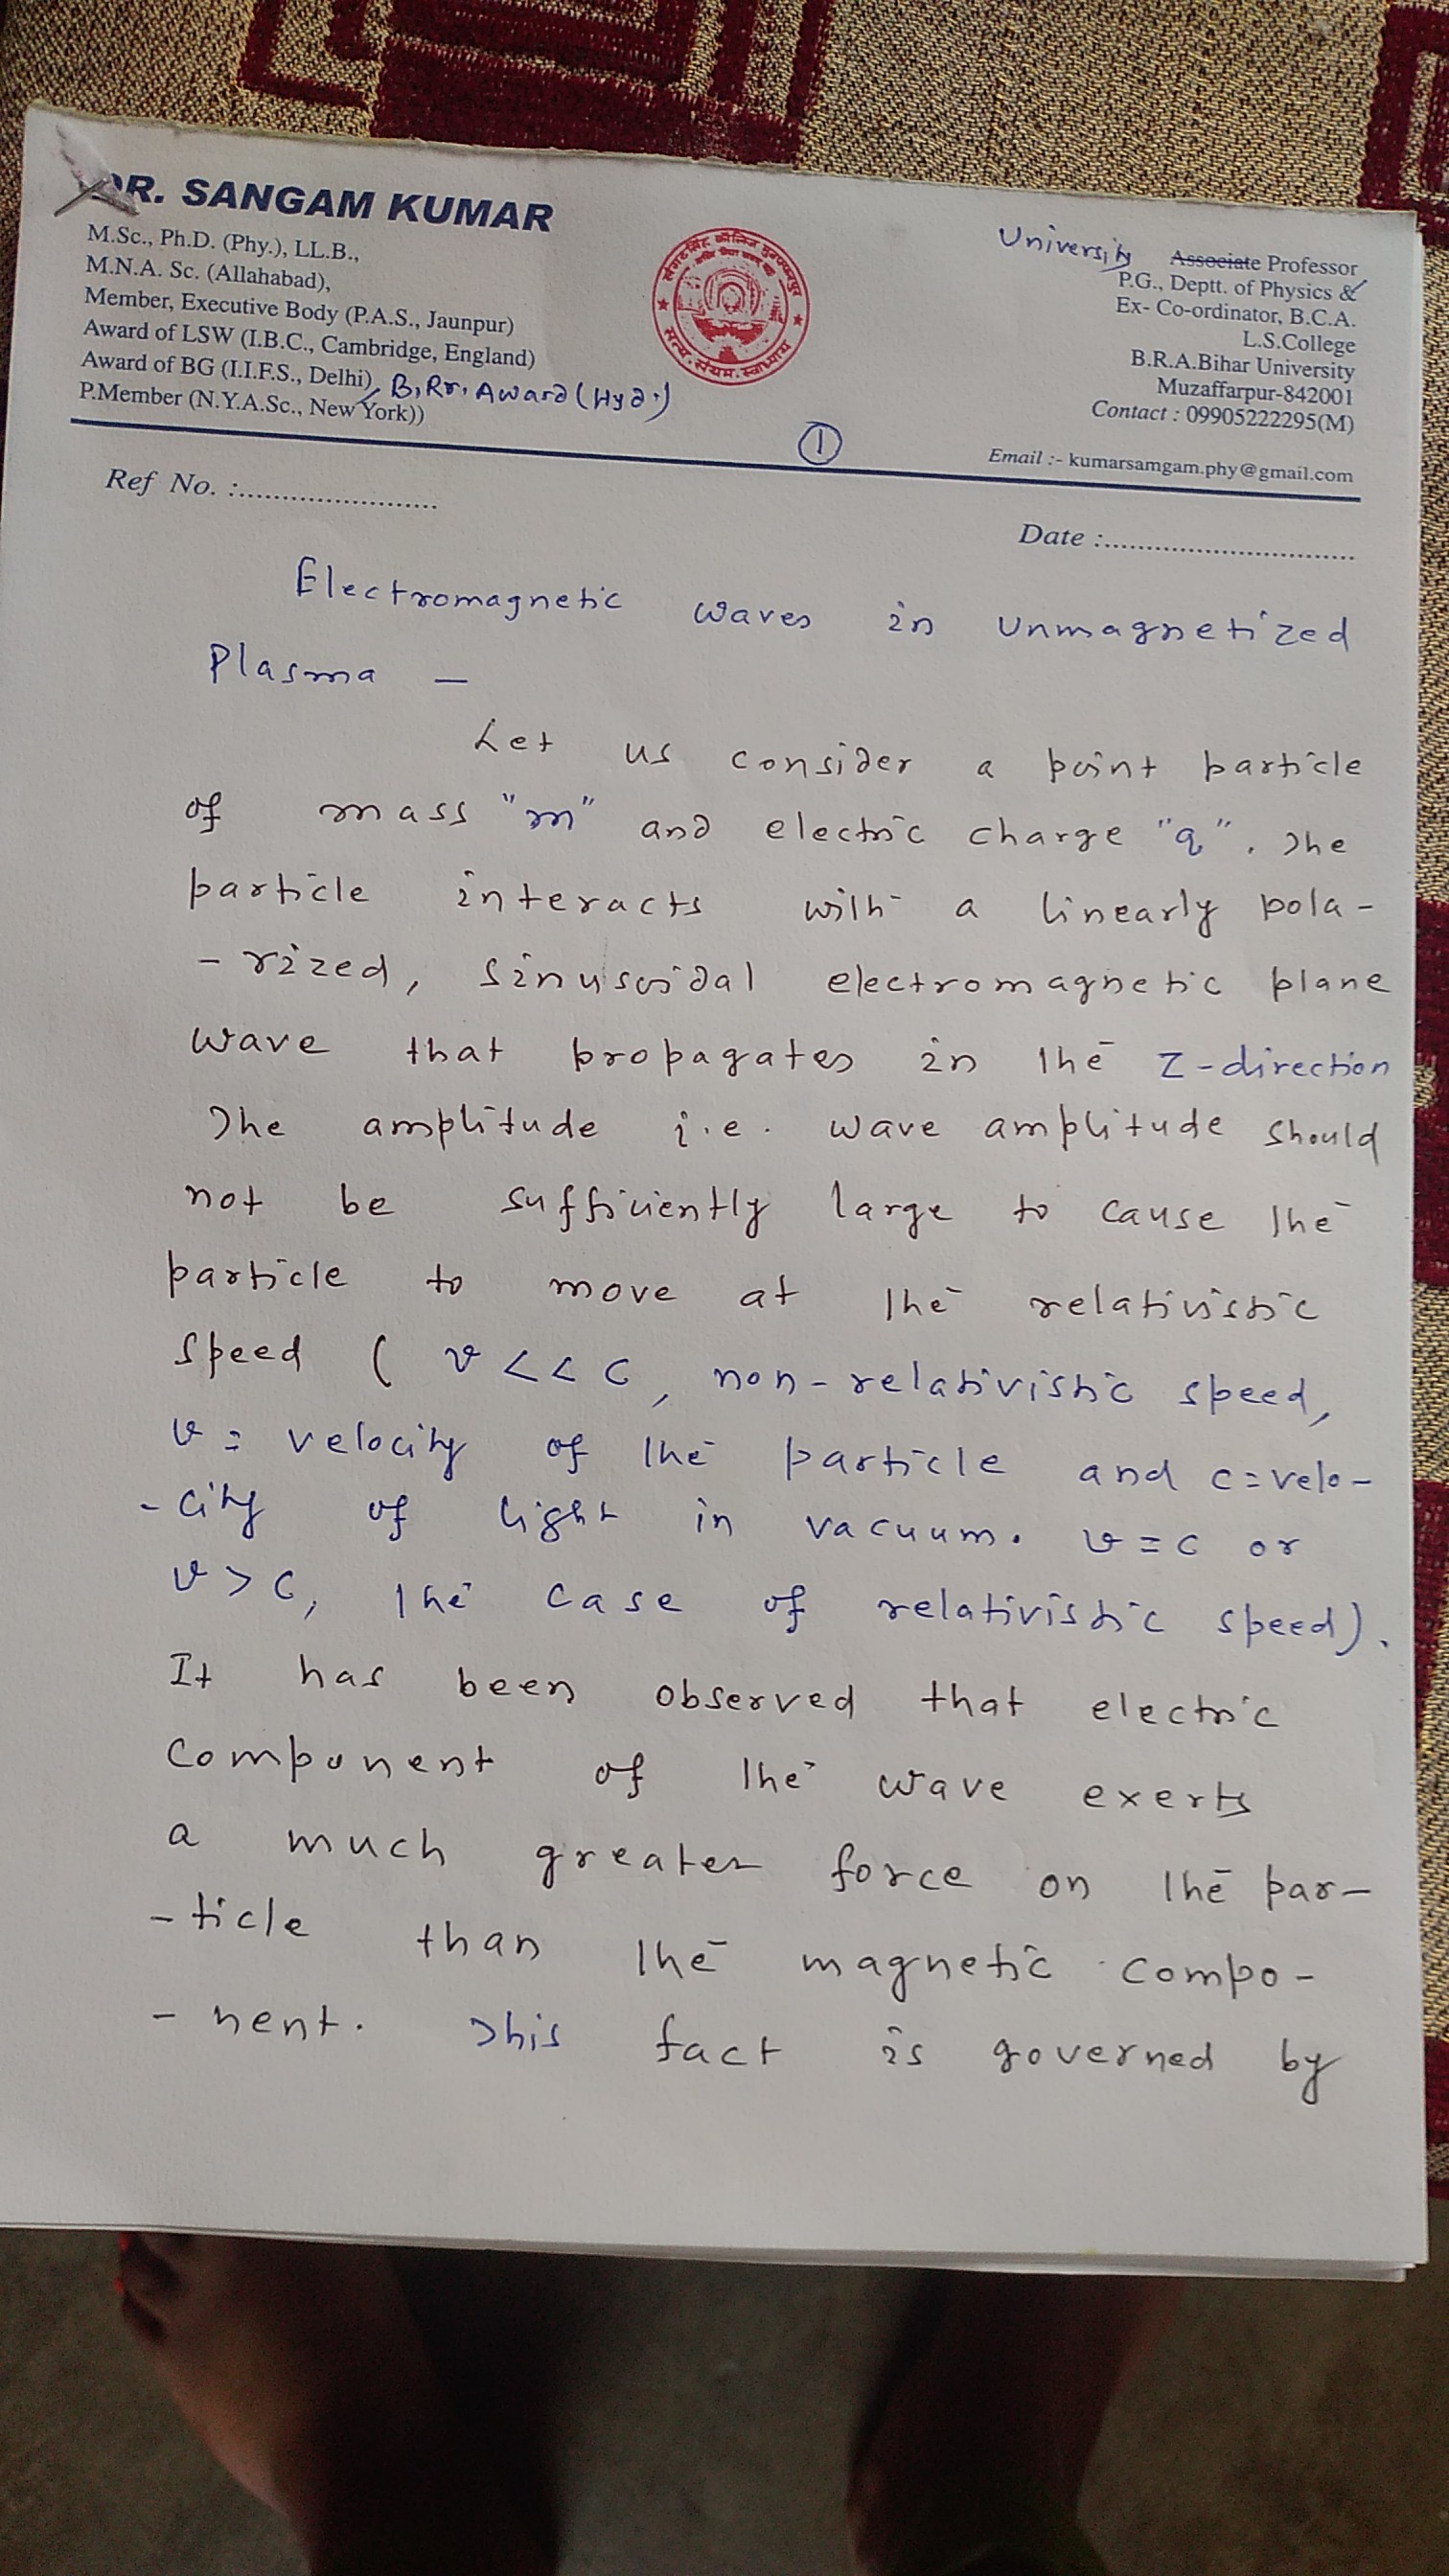 DR. SANGAM KUMAR
M.Sc., Ph.D. (Phy.), LL.B.,
M.N.A. Sc. (Allahabad),
Member, Executive Body (P.A.S., Jaunpur)
Award of LSW (I.B.C., Cambridge, England)
Award of BG (I.I.F.S., Delhi), B, Rr, Award (Hyd.)
P.Member (N.Y.A.Sc., New York))
University Associate Professor
P.G., Deptt. of Physics &
Ex- Co-ordinator, B.C.A.
L.S.College
B.R.A.Bihar University
Muzaffarpur-842001
Contact : 09905222295(M)
Email :- kumarsamgam.phy@gmail.com
1
Ref No. :........................
Date :................................
Electromagnetic waves in Unmagnetized
Plasma —
Let us consider a point particle
of mass "m" and electric charge "q". The
particle interacts with a linearly pola-
-rized, sinusoidal electromagnetic plane
wave that propagates in the Z-direction
The amplitude i.e. wave amplitude should
not be sufficiently large to cause the
particle to move at the relativistic
speed ( v << c, non-relativistic speed,
v = velocity of the particle and c = velo-
-city of light in vacuum. v = c or
v > c, the case of relativistic speed).
It has been observed that electric
component of the wave exerts
a much greater force on the par-
-ticle than the magnetic compo-
-nent. This fact is governed by